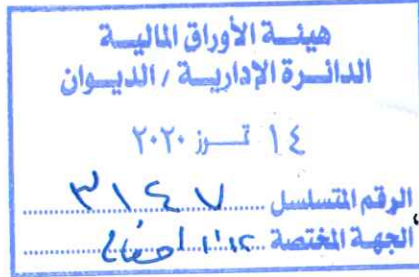 هيئة الأوراق المالية
الدائرة الإدارية / الديوان
١٤ تموز ٢٠٢٠
الرقم المتسلسل ٣١٤٧
الجهة المختصة